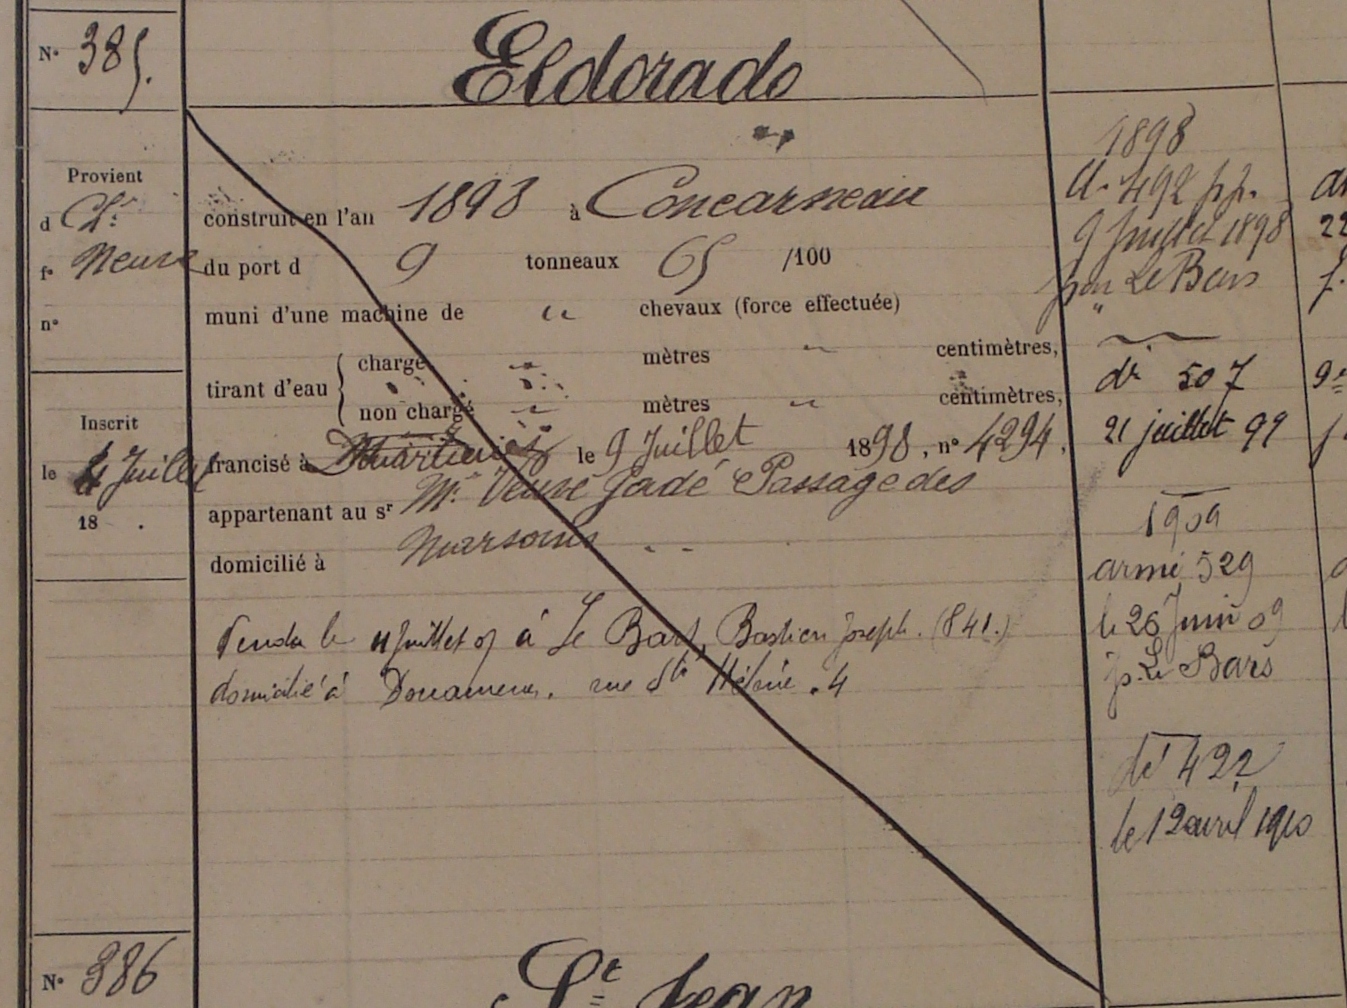 N° 385.
Eldorado
Provient
d Ct.
f° Neuve
n°
construit en l'an 1898 à Concarneau
du port d 9 tonneaux 65 /100
muni d'une machine de " chevaux (force effectuée)
tirant d'eau
chargé " mètres " centimètres,
non chargé " mètres " centimètres,
Inscrit
le 4 Juillet
18 .
francisé à le 9 Juillet 1898, n° 4294.
appartenant au sr Me Veuve Jadé Passage des
domicilié à
Vendu le 11 juillet 07 à Le Bars, Bastien joseph. (841.)
domicilié à Douarnenez. rue Ste Hélène. 4
1898
A. 492 p.p.
9 Juillet 1898
pon Le Bars
"
dé 507
21 juillet 99
1909
armé 529
le 26 Juin 09
p. Le Bars
dé 422
le 12 avril 1910
22
N° 386
St Jean